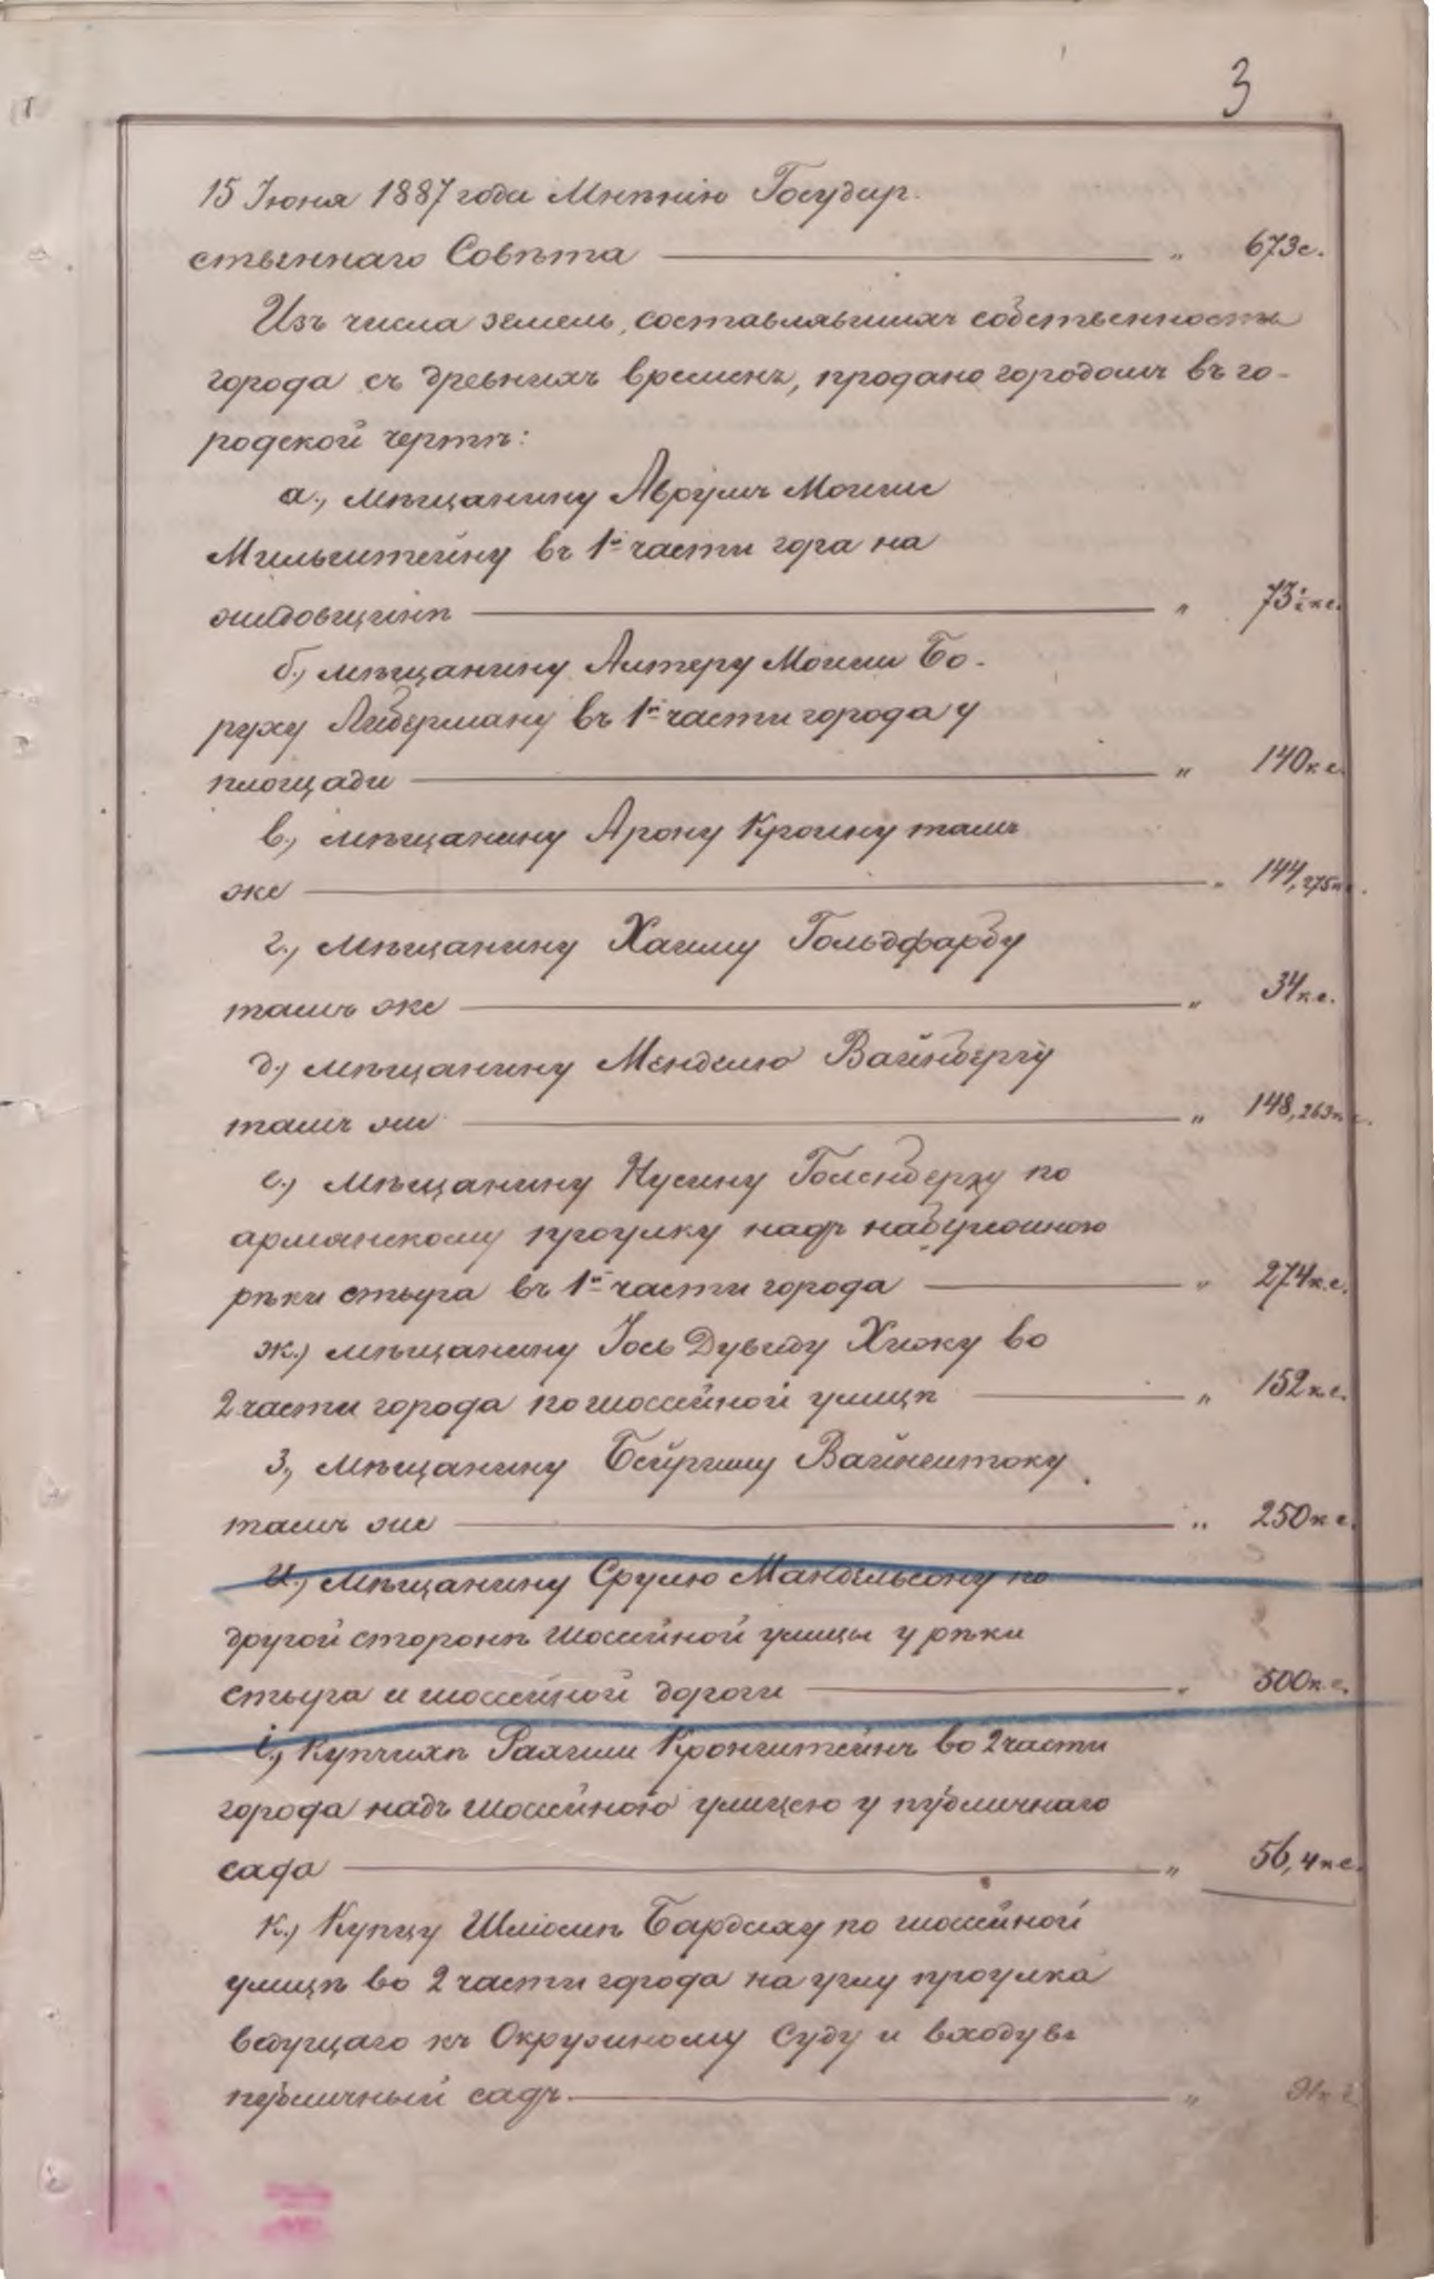 3
15 Іюня 1887 года Мнѣнію Государ.
ственнаго Совѣта — " 673с.
Изъ числа земель, составлявшихъ собственность
города съ древнихъ временъ, продано городомъ въ го-
родской чертѣ:
а.) мѣщанину Аврумъ Мошие
Мильштейну въ 1й части гора на
жидовщинѣ — "
б.) мѣщанину Алтеру Мошии Бо-
руху Либерману въ 1й части города у
площади — " 140к.с.
в.) мѣщанину Арону Кроину тамъ
же — " 144,275к.
г.) мѣщанину Хаиму Гольдфарбу
тамъ же — " 34к.с.
д.) мѣщанину Менделю Вайнбергу
тамъ же — " 148,263к.с.
е.) мѣщанину Нусину Голенберху по
армянскому проулку надъ набережною
рѣки стыра въ 1й части города — " 274к.с.
ж.) мѣщанину Іось Дувиду Хижу во
2 части города по шоссейной улицѣ — " 152к.с.
з.) мѣщанину Бейришу Вайнштоку
тамъ же — " 250к.с.
и.) мѣщанину Срулю Мандельсону по
другой сторонѣ шоссейной улицы у рѣки
стыра и шоссейной дороги — " 500к.с.
і.) Купчихѣ Кронштейнъ во 2 части
города надъ шоссейною улицею у публичнаго
сада — " 56,4к.с.
к.) Купцу Шліомѣ Бардаху по шоссейной
улицѣ во 2 части города на углу проулка
ведущаго къ Окружному Суду и входу въ
публичный садъ — " 91к.с.